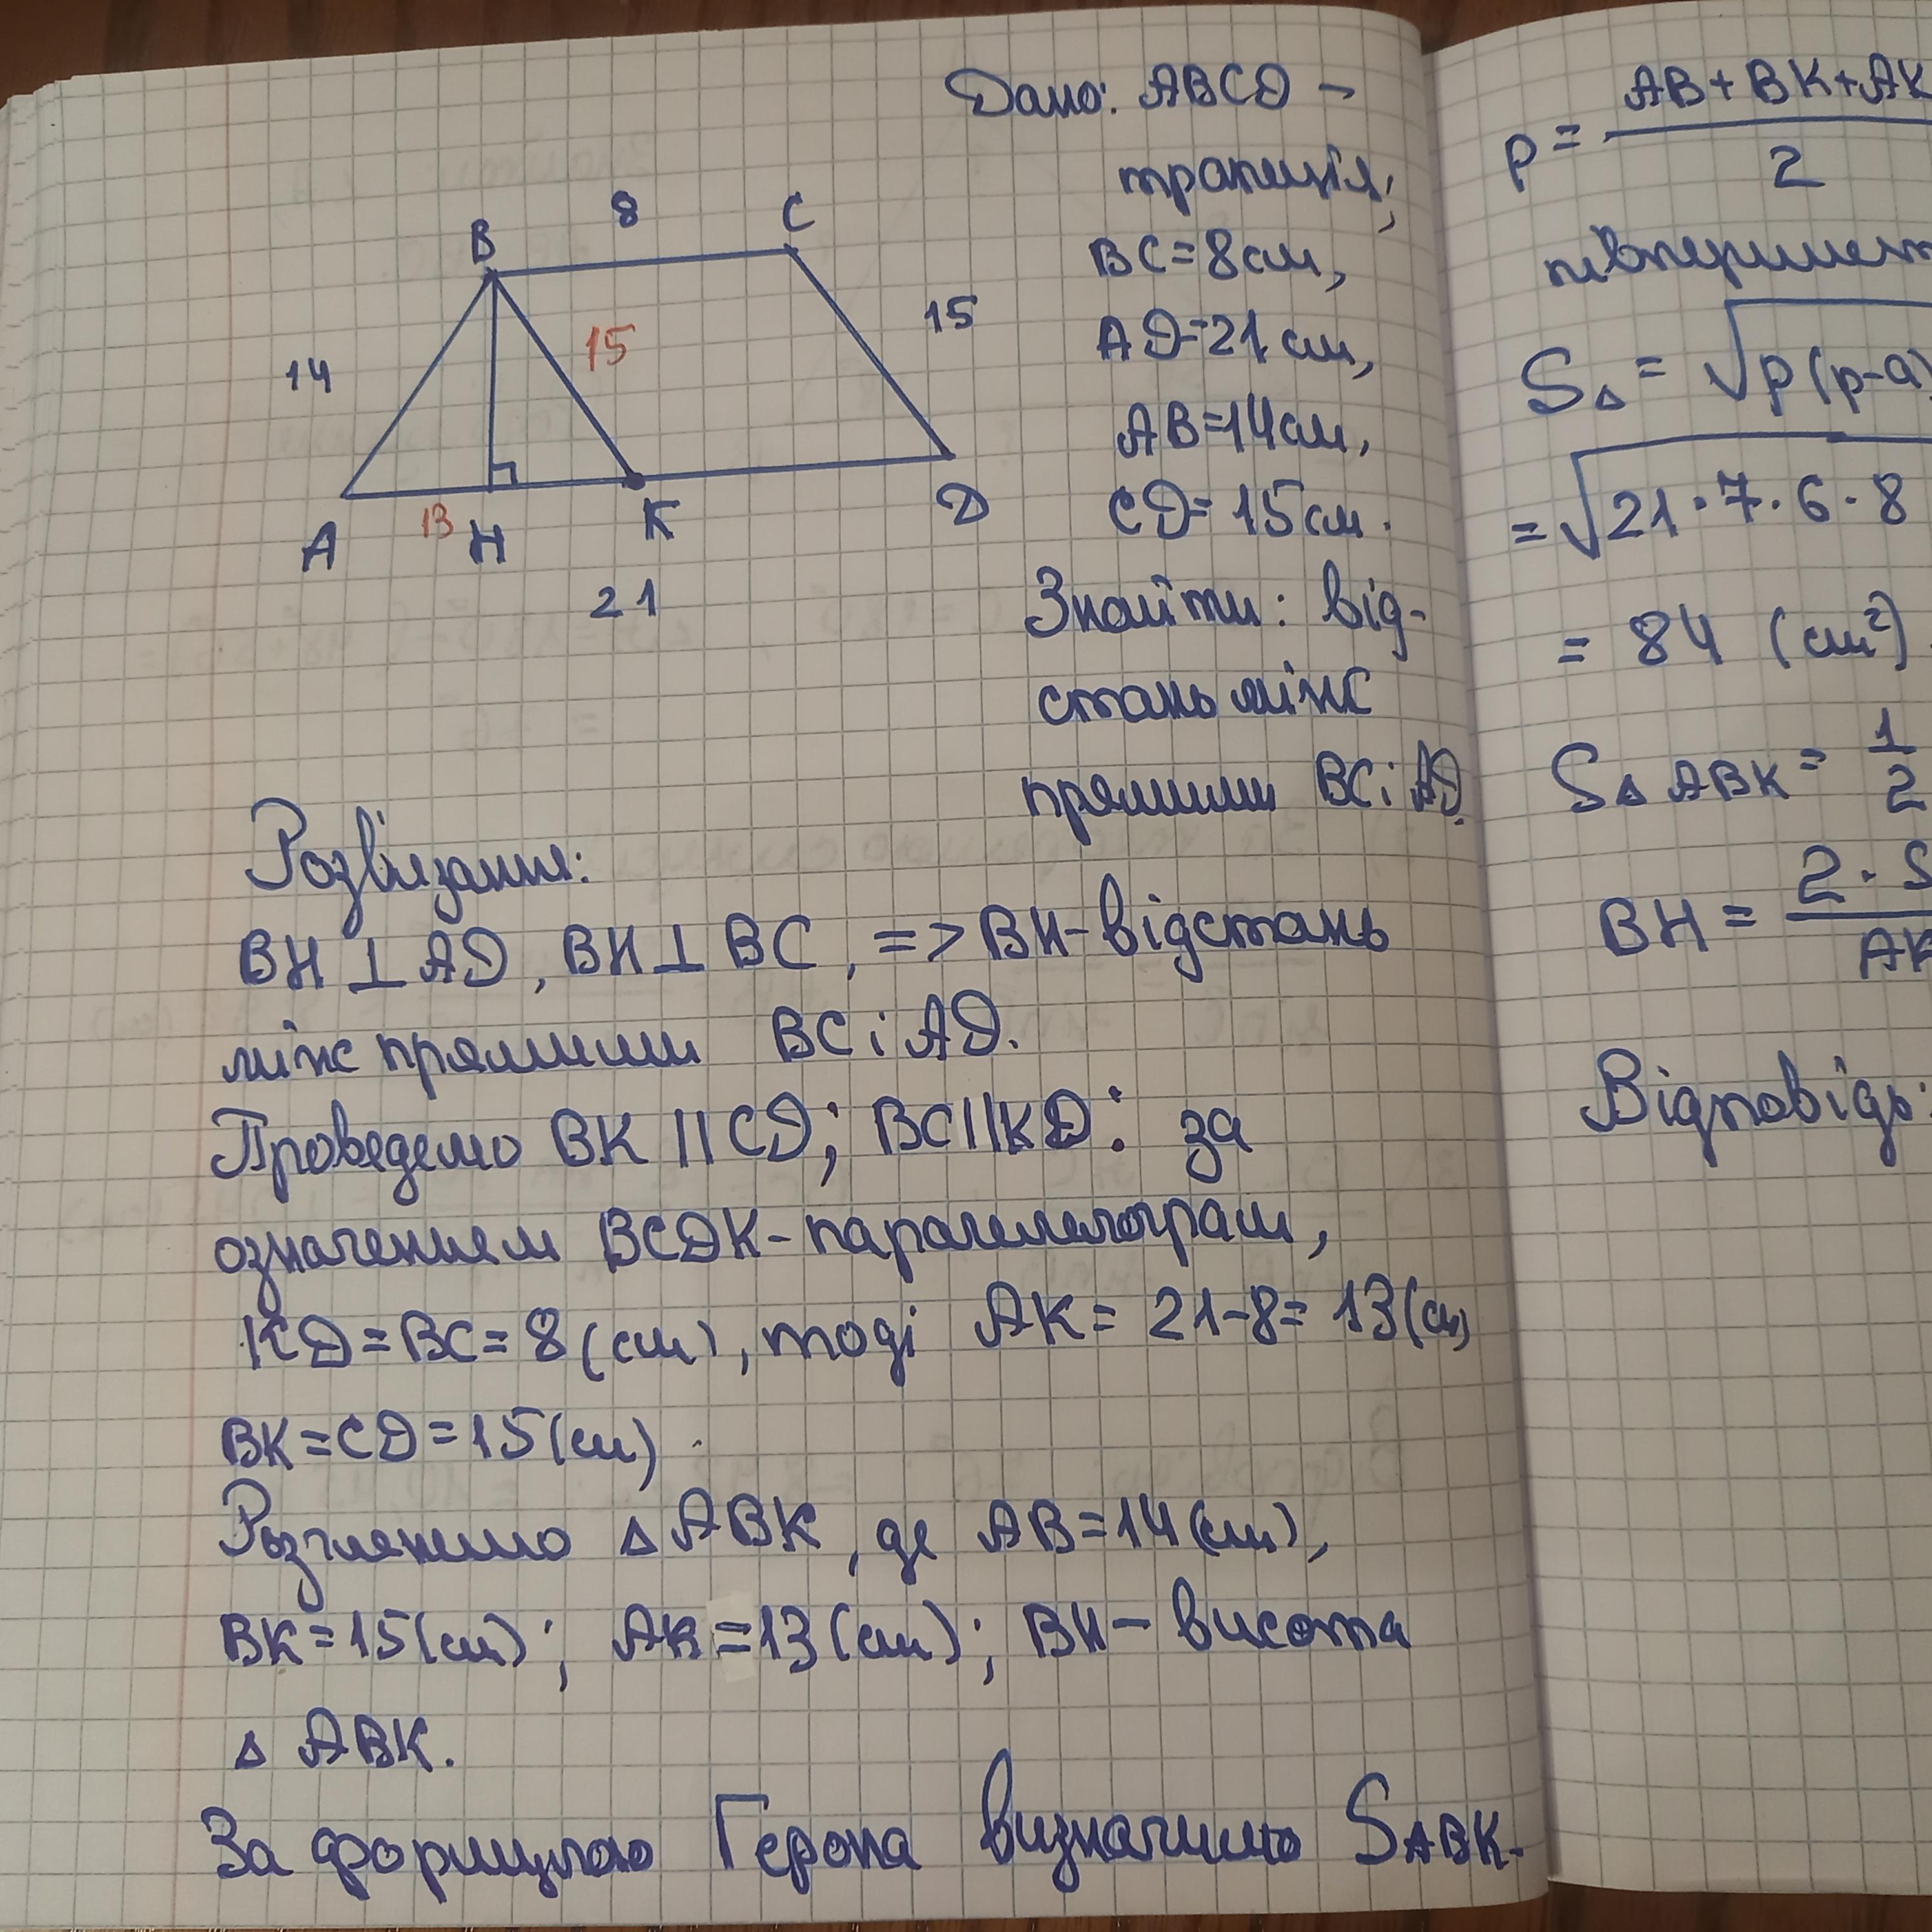 Дано: ABCD -
трапеція,
BC=8см,
AD=21 см,
AB=14см,
CD= 15см.
Знайти: від-
стань між
прямими BC і AD.
B
8
C
14
15
15
A
13
H
K
D
21
Розв'язання:
BH ⊥ AD, BH ⊥ BC, => BH- відстань
між прямими BC і AD.
Проведемо BK || CD; BC||KD: за
означенням BCDK- паралелограм,
KD = BC = 8 (см), тоді AK = 21-8= 13(см)
BK = CD = 15(см).
Розглянемо △ ABK, де AB=14(см),
BK=15(см); AK=13(см); BH - висота
△ ABK.
За формулою Герона визначимо SABK.
p = AB + BK + AK
2
SΔ = √p(p-a)
= √21·7·6·8
= 84 (см²)
SΔ ABK = 1
2
BH = 2·S
AK
Відповідь: